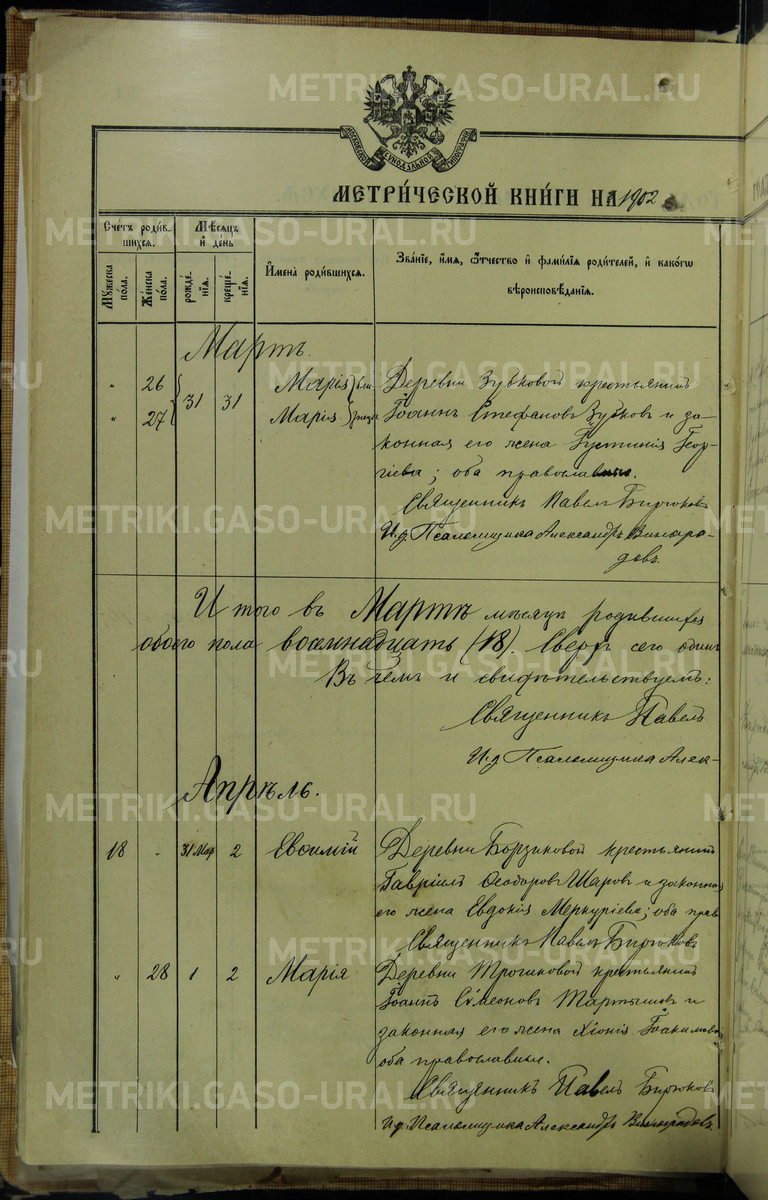 МОСКОВСКОЙ СѴНОДАЛЬНОЙ ТИПОГРАФІИ
МЕТРИ́ЧЕСКОЙ КНИ́ГИ НА 1902
Сче́тъ роди́в-
шихся.
Мѣ́сяцъ
и҆ де́нь
Му́жеска по́ла.
Же́нска по́ла.
рожде́-нїѧ.
креще́-нїѧ.
И҆мена̀ роди́вшихся.
Зва́нїе, и҆́мѧ, ѻ҆́тчество и҆ фами́лїѧ роди́телей, и҆ како́гѡ
вѣроисповѣ́данїѧ.
Мартъ.
" 26 31 31 Марія Деревни Зубковой крестьянинъ
" 27 Марія Іоаннъ Стефановъ Зубковъ и за-
конная его жена Іустинія Геор-
гіева; оба православные.
Священникъ Павелъ Бирюковъ
И.д. Псаломщика Александръ Виногра-
довъ.
Итого въ Мартѣ мѣсяцѣ родившихся
обоего пола восемнадцать (18). Сверхъ сего одинъ
Въ чемъ и свидѣтельствуемъ:
Священникъ Павелъ
И.д. Псаломщика Алек-
Апрѣль.
18 " 31 Мар 2 Евѳимій Деревни Борзиковой крестьянинъ
Гавріилъ Ѳеодоровъ Шаровъ и законная
его жена Евдокія Меркуріева; оба прав
Священникъ Павелъ Бирюковъ
" 28 1 2 Марія Деревни крестьянинъ
Іоаннъ Сѵмеоновъ и
законная его жена Хіонія Іоакимова
оба православные.
Священникъ Павелъ Бирюковъ
И.д. Псаломщика Александръ Виноградовъ.
METRIKI.GASO-URAL.RU